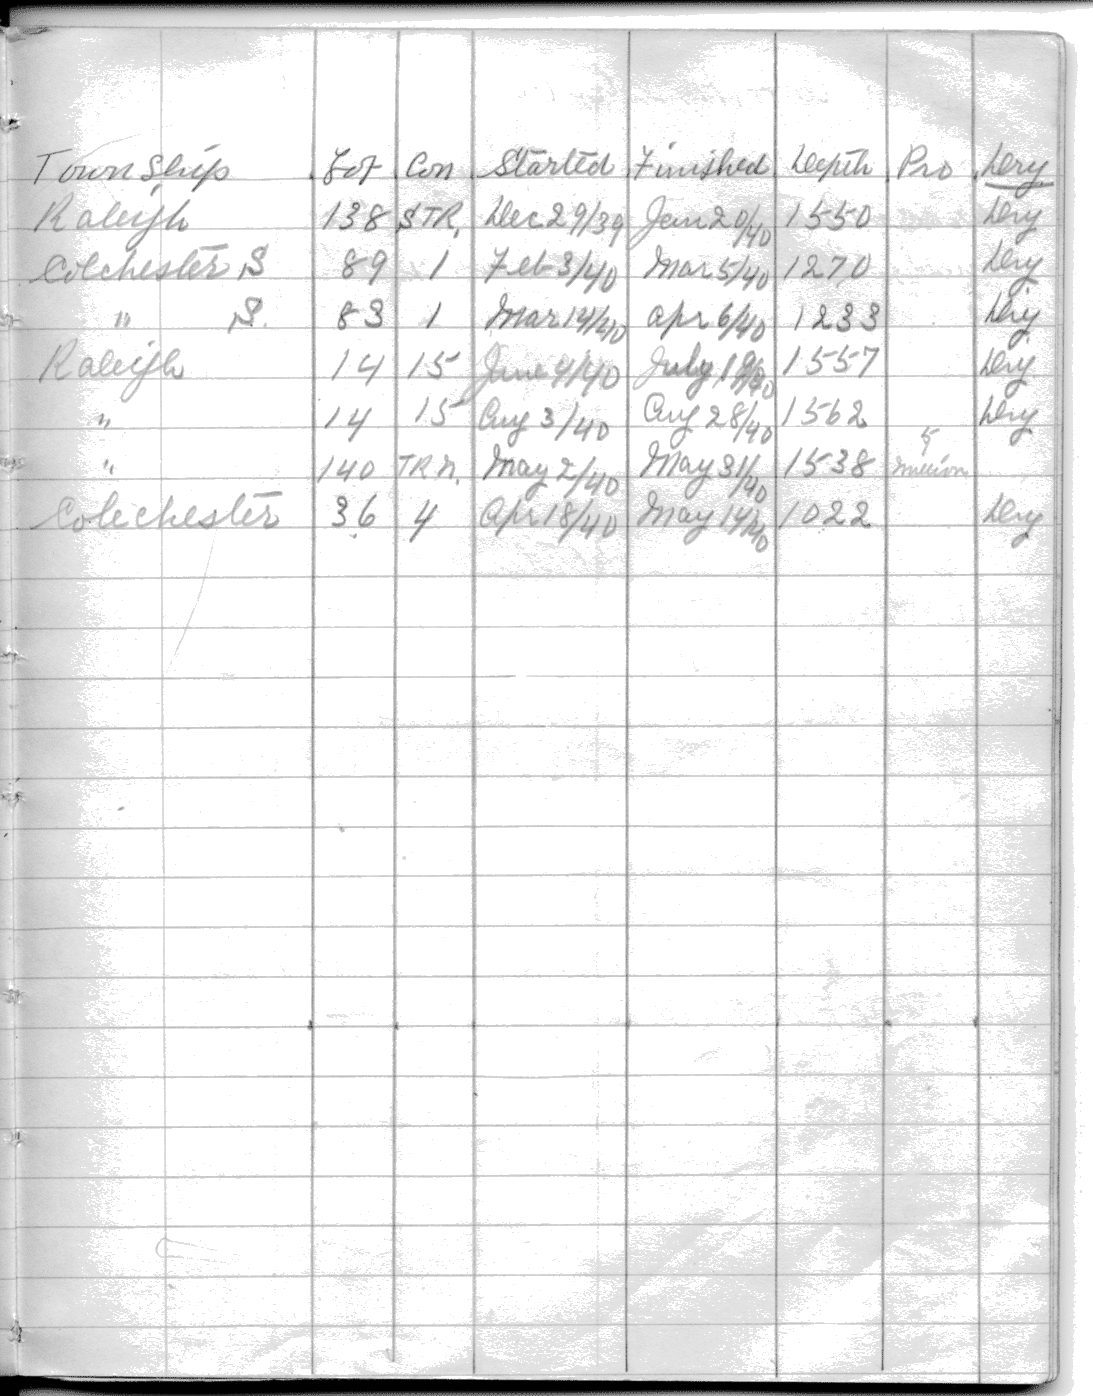 Township Lot Con Started Finished Depth Pro Dry
Raleigh 138 STR. Dec 29/39 Jan 20/40 1550 Dry
Colchester S 89 1 Feb 3/40 Mar 5/40 1270 Dry
" S. 83 1 Mar 14/40 Apr 6/40 1233 Dry
Raleigh 14 15 June 4/40 July 19/40 1557 Dry
" 14 15 Aug 3/40 Aug 28/40 1562 Dry
" 140 TR N. May 2/40 May 31/40 1538 5 million
Colechester 36 4 Apr 18/40 May 14/40 1022 Dry